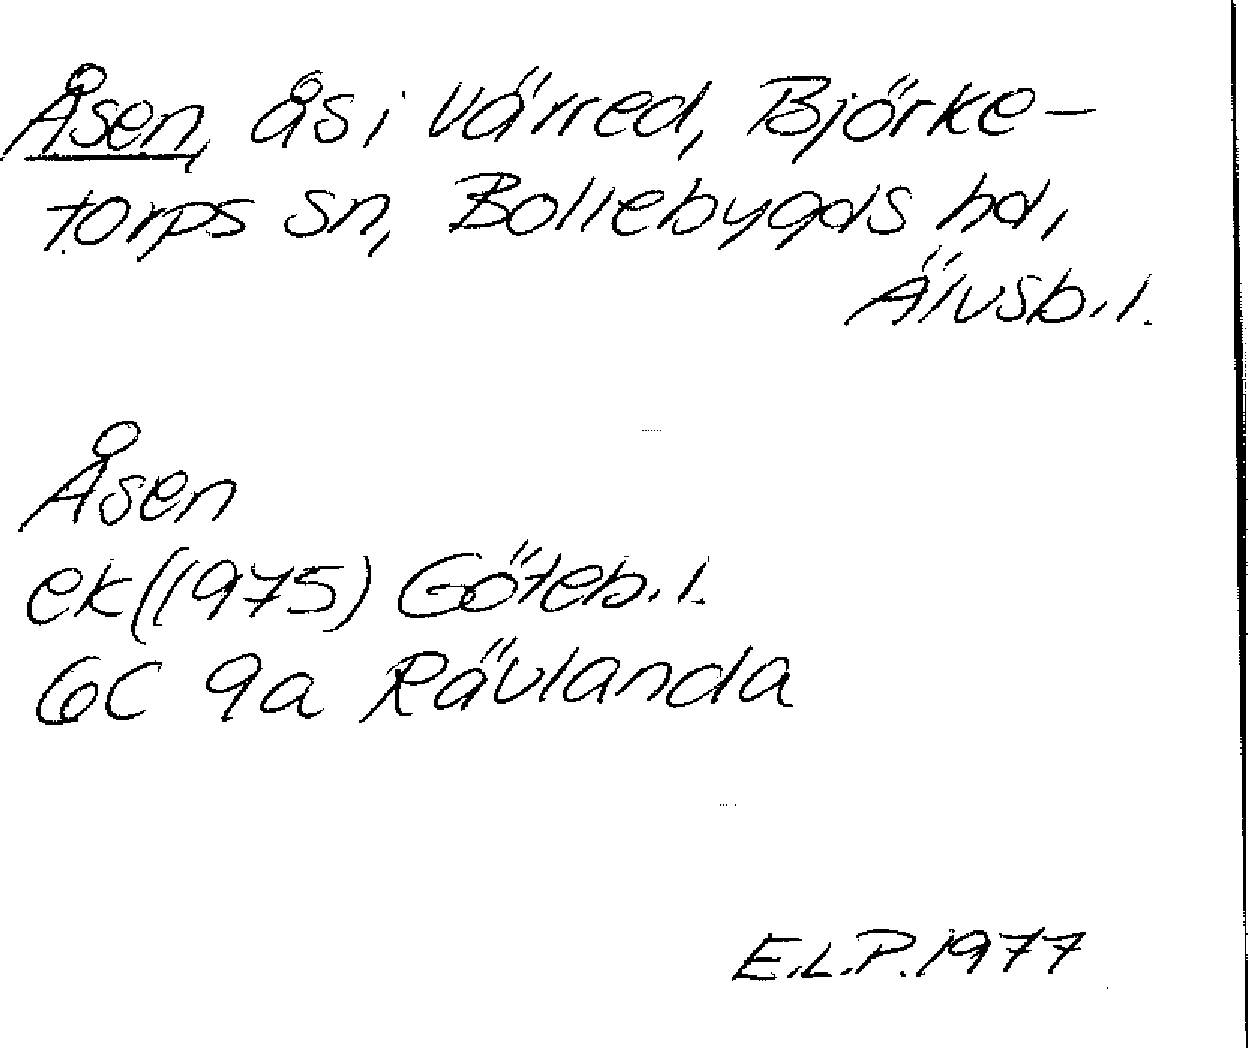 Åsen, ås i Värred, Björke-
torps sn, Bollebygds hd,
Älvsb. l.
Åsen
ek (1975) Göteb. l.
6C 9a Rävlanda
E.L.P. 1977